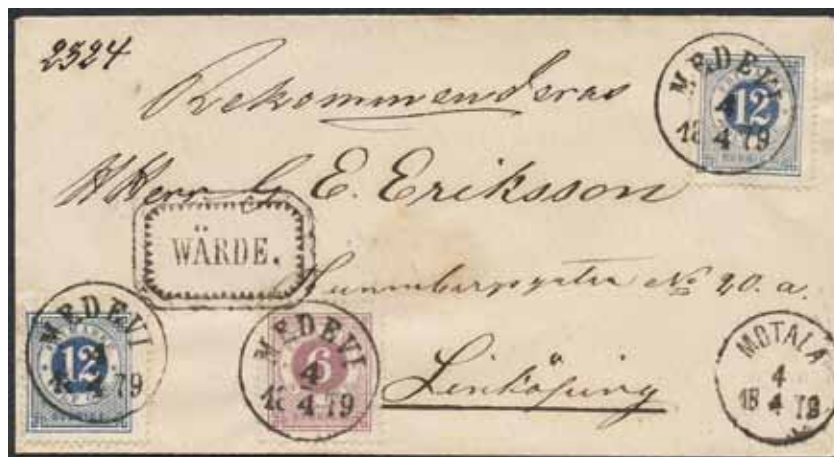 2324
Rekommenderas
MEDEVI
4
18 4 79
12
Herr G. E. Eriksson
WÄRDE.
No 20. a.
MEDEVI
4
18 4 79
12
MEDEVI
4
18 4 79
6
Linköping
MOTALA
4
18 4 79